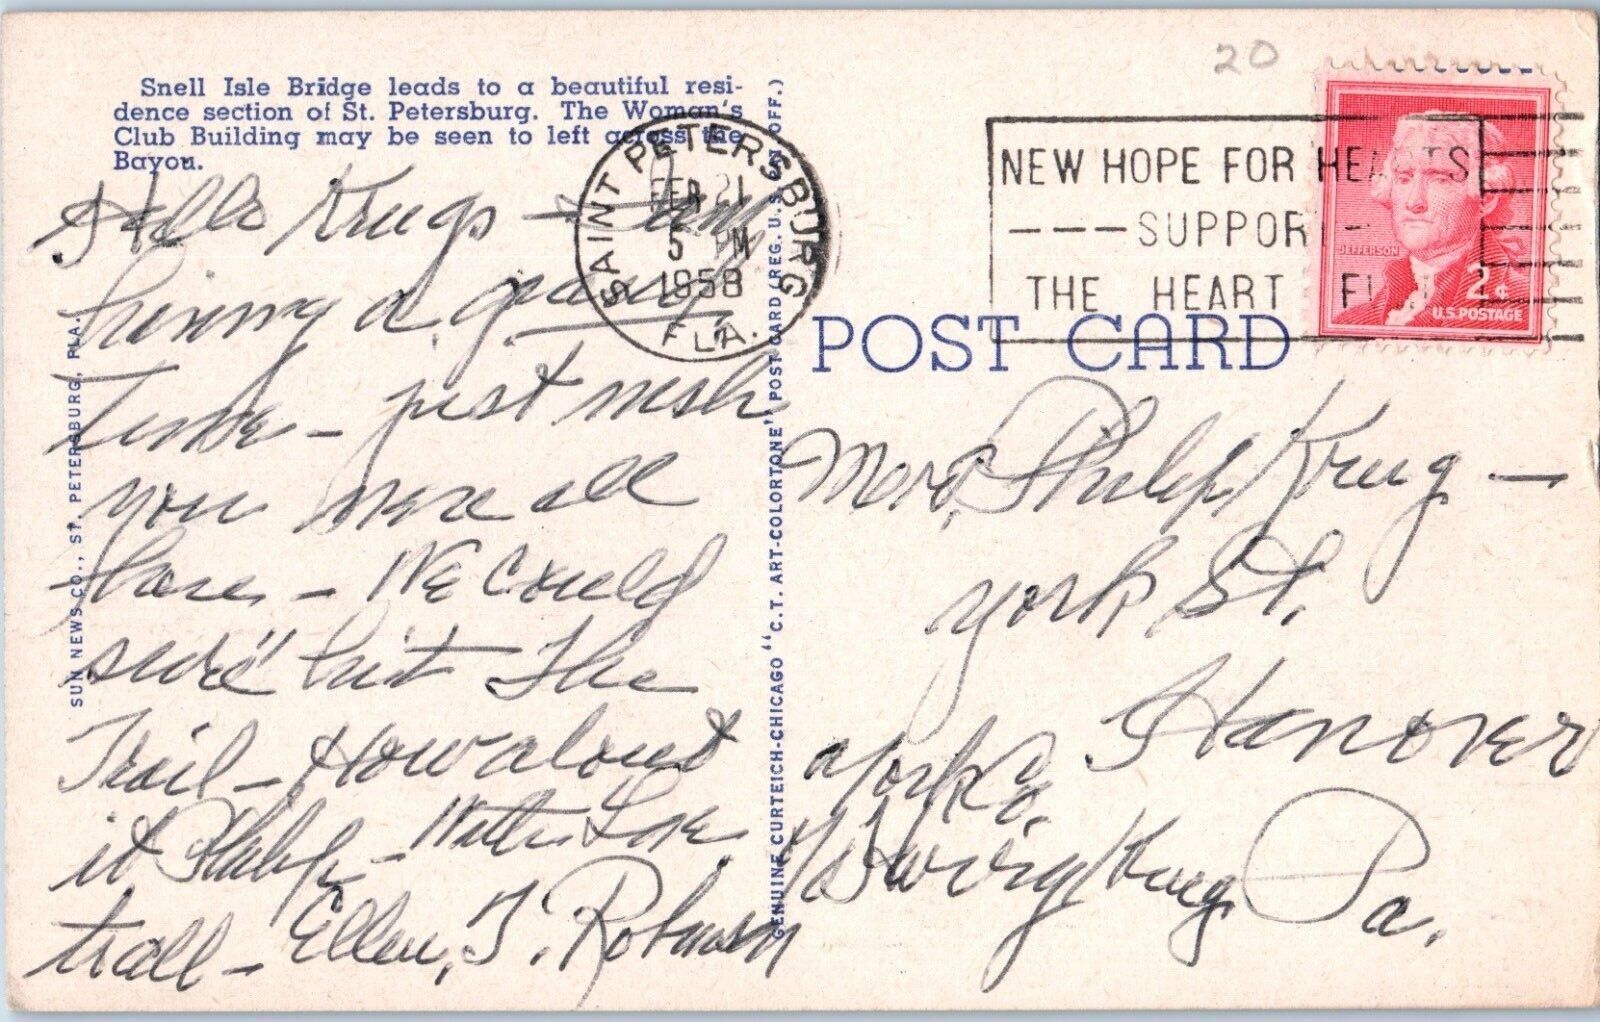 Snell Isle Bridge leads to a beautiful resi-
dence section of St. Petersburg. The Woman's
Club Building may be seen to left across the
Bayou.
Hello Krugs –
having a grand
Time – just wish
you were all
here – We Could
sure "hit the
Trail – How about
it Philip – With Love
to all – Ellen, T. Robinson
SUN NEWS CO., ST. PETERSBURG, FLA.
GENUINE CURTEICH-CHICAGO "C.T. ART-COLORTONE" POST CARD (REG. U.S. OFF.)
SAINT PETERSBURG
FEB 21
5 PM
1958
FLA.
20
NEW HOPE FOR HEARTS
---SUPPORT-
THE HEART FUND
JEFFERSON
2¢
U.S. POSTAGE
POST CARD
Mrs. Philip Krug –
York St.
Hanover
York Co.
Krug Pa.